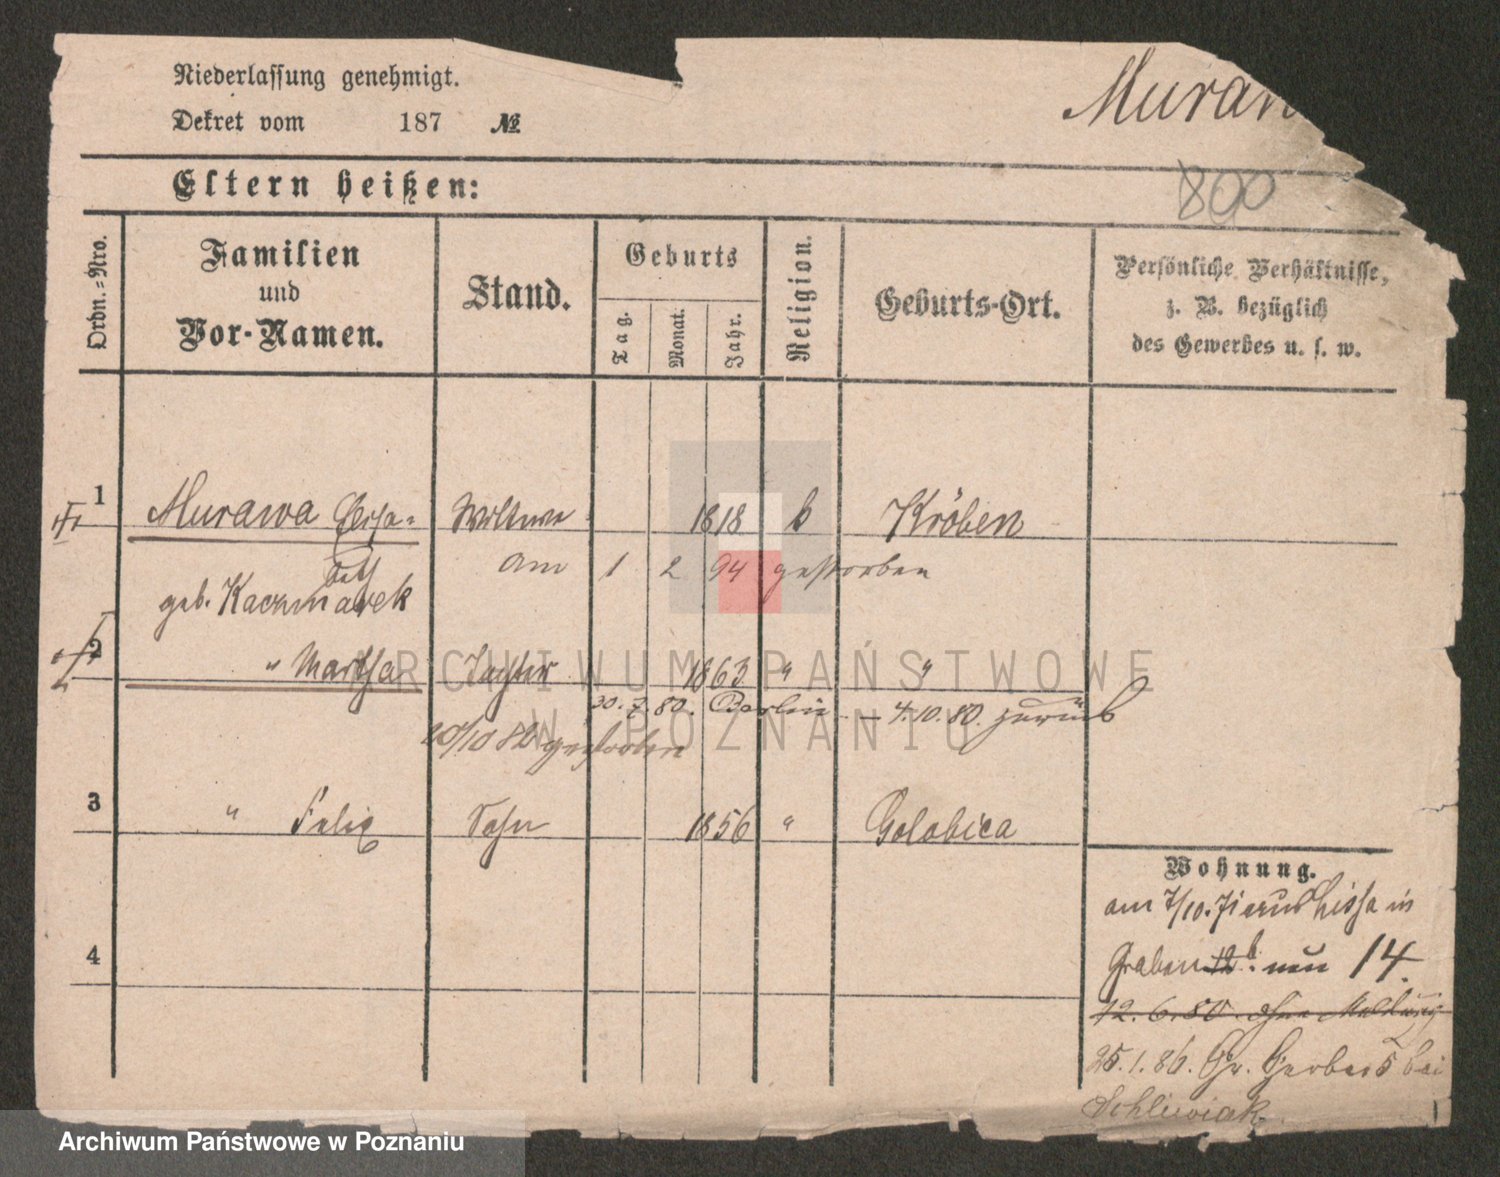 Niederlassung genehmigt.
Muraw
Dekret vom 187 №
Eltern heißen:
800
Ordn.-Nro.
Familien
und
Vor-Namen.
Stand.
Geburts
Tag.
Monat.
Jahr.
Religion.
Geburts-Ort.
Persönliche Verhältnisse,
z. B. bezüglich
des Gewerbes u. s. w.
1 Murawa Elisa= Wittwe 1818 k Kröben
beth am 1 2 94 gestorben
geb. Kaczmarek
2 " Martha Tochter 1863 " "
30.7.80. Berlin – 4.10.80. zurück
20/10 82 gestorben
3 " Felix Sohn 1856 " Golobica
Wohnung.
am 7/10.71 aus Lissa in
4
Graben 12b. nun 14.
12.6.80. ohne Meldung
25.1.86. Gr. Gerber 5 bei
Schliwiak
ARCHIWUM PAŃSTWOWE
W POZNANIU
Archiwum Państwowe w Poznaniu